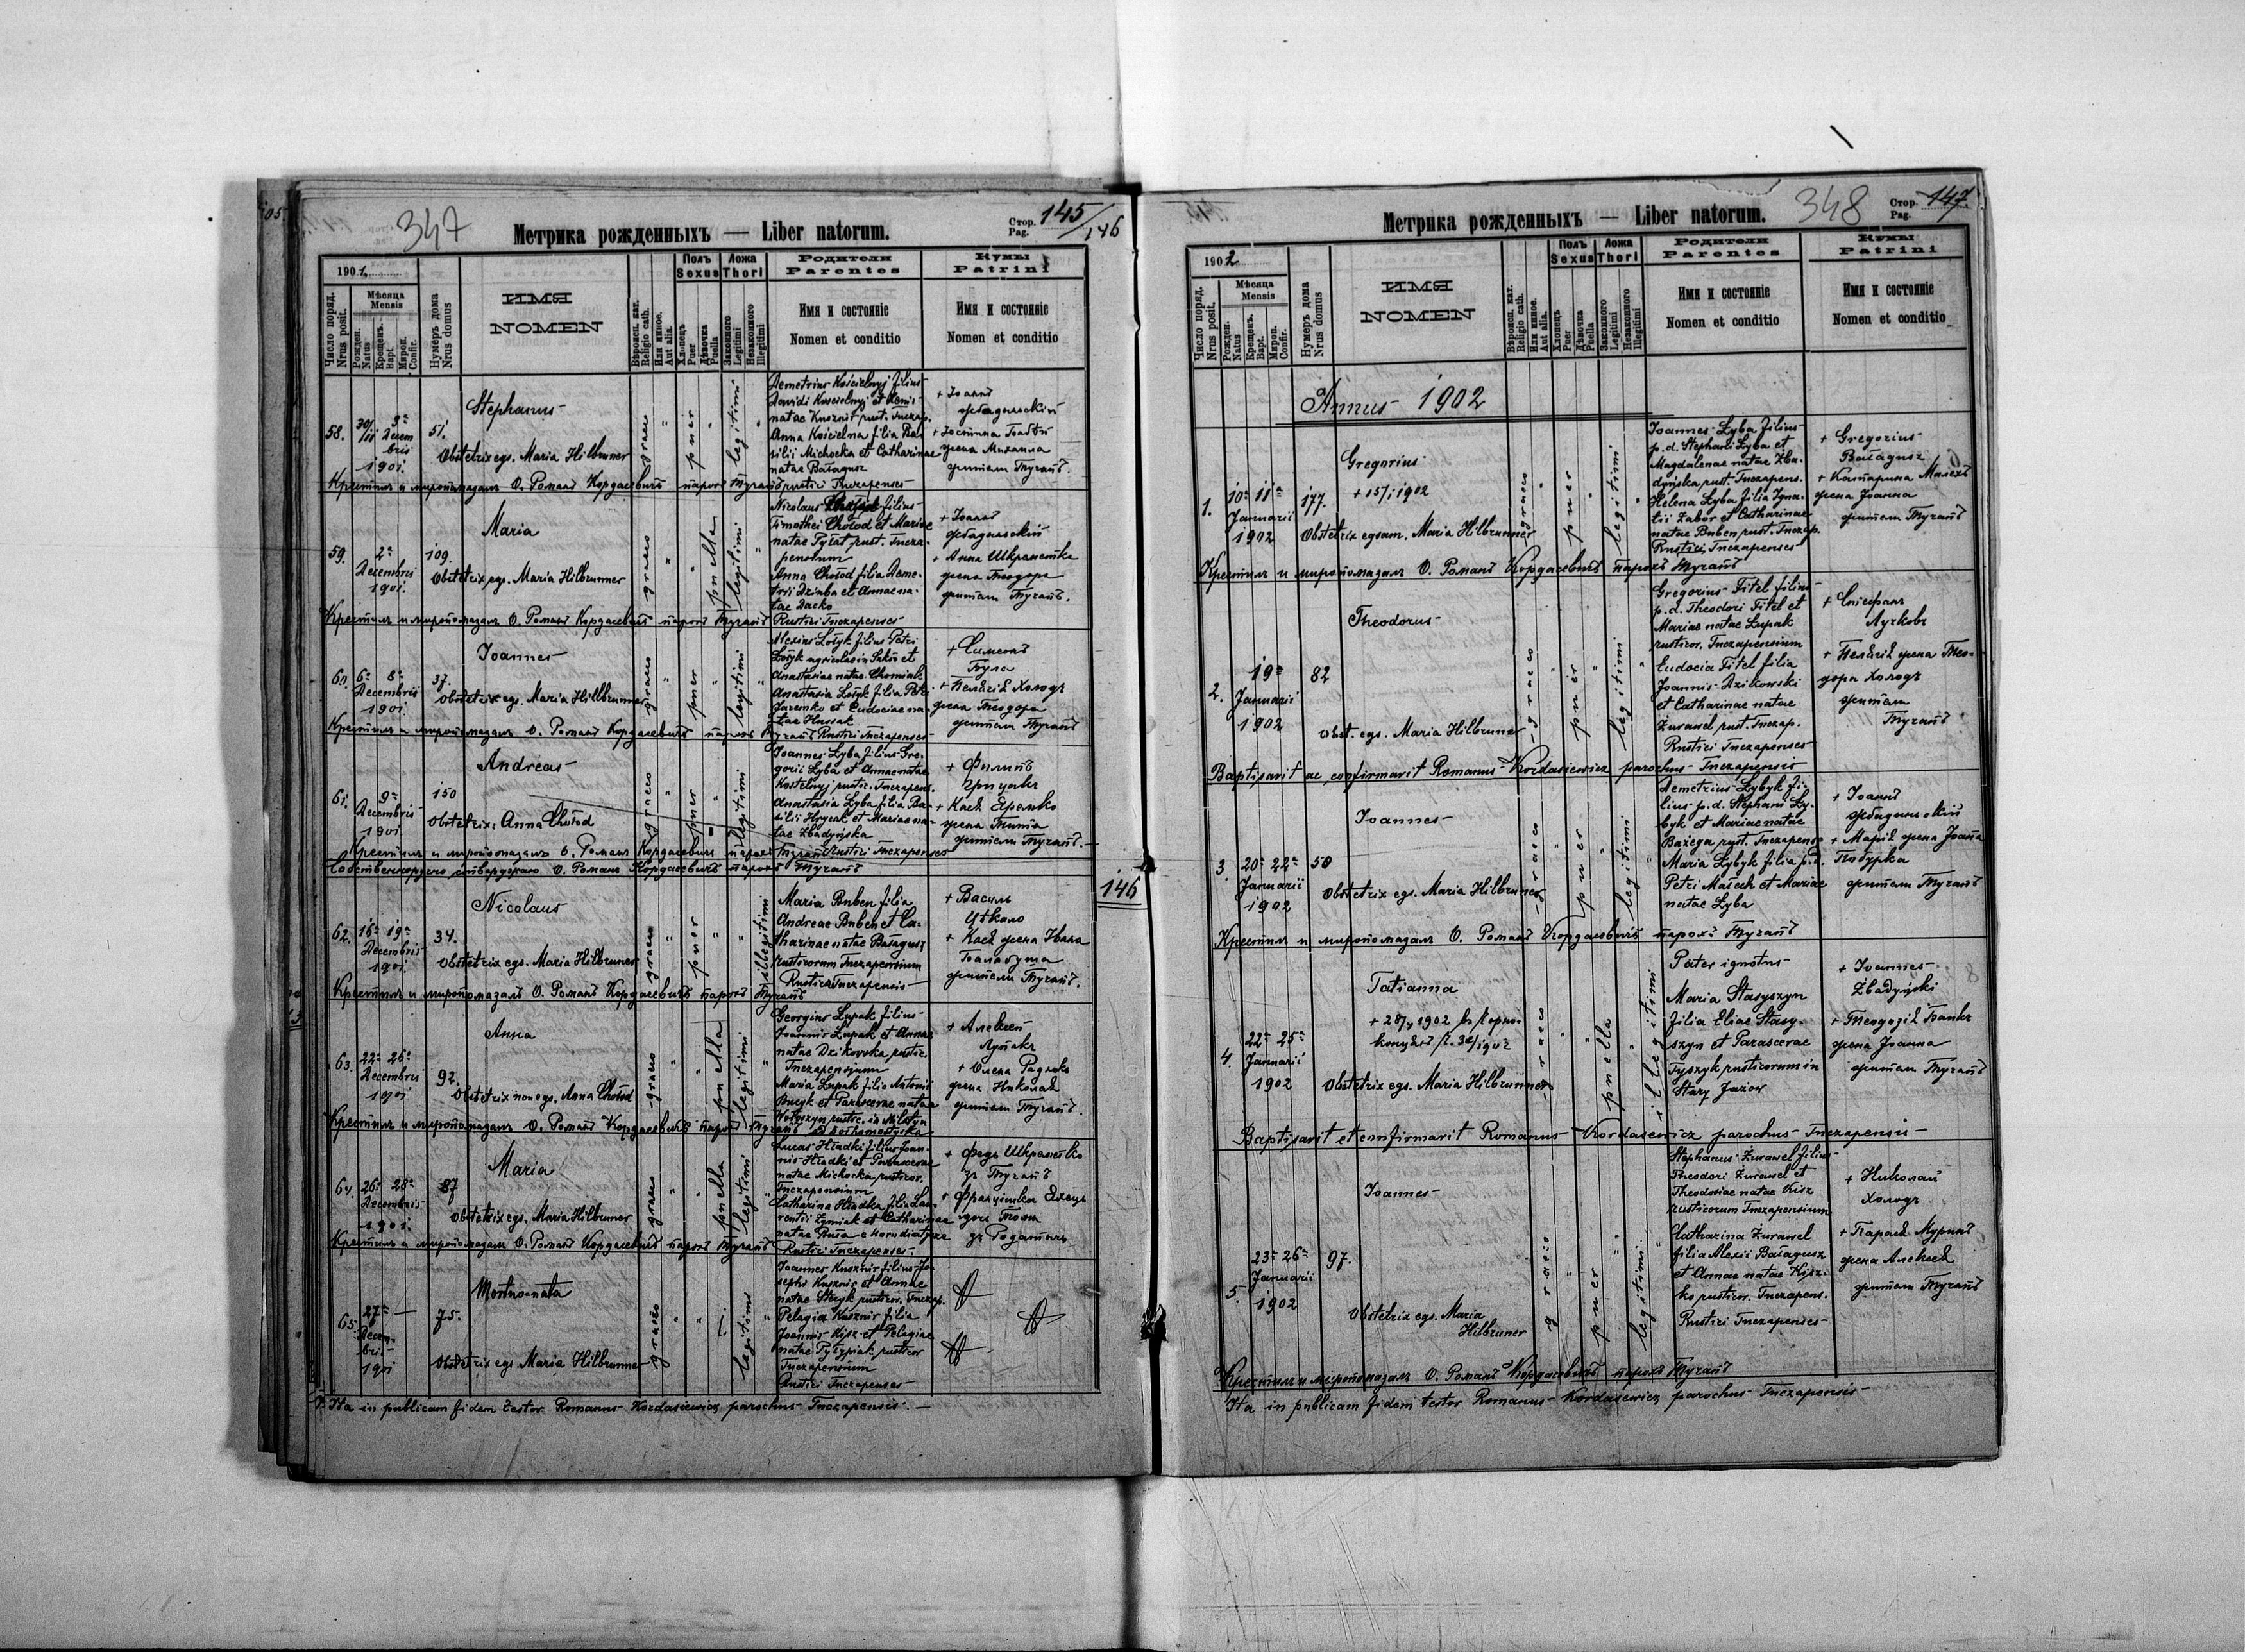 347
Метрика рожденныхъ — Liber natorum.
Стор. Pag. 145/146
1901
Число поряд. Nrus posit.
Мѣсяца Mensis
Рожден. Natus
Крещенъ. Bapt.
Мироп. Confir.
Нумеръ дома Nrus domus
ИМЯ
NOMEN
Вѣроисп. кат. Religio cath.
Или инное. Aut alia.
Полъ Sexus
Хлопецъ Puer
Дѣвочка Puella
Ложа Thori
Законного Legitimi
Незаконного Illegitimi
Родители
Parentes
Имя и состоянiе
Nomen et conditio
Кумы
Patrini
Имя и состоянiе
Nomen et conditio
58.
30/11 3ª Decem
bris
1901
51.
Stephanus
Obstetrix egs. Maria Hilbrunner
graeco
puer
legitimi
Demetrius Kościelnyj filius
Davidi Kościelnyj et
natae Kusznir rust. Tuczap.
Anna Kościelna filia Ba-
silii Michocka et Catharinae
natae Bałagusz
rustici Tuczapenses
+ Іоаннъ
+ Юстина
жена Михаила
жители Тучапъ.
Крестилъ и миропомазалъ О. Романъ Кордасевичъ парохъ Тучапъ
59.
2ª
Decembris
1901.
109.
Maria
Obstetrix egs. Maria Hilbrunner
graeco
puella
legitimi
Nicolaus filius
Timothei Chołod et Mariae
natae Pyłat rust. Tucza-
pensium
Anna Chołod filia Deme-
trii Dziuba et Annae na-
tae Dacko
Rustici Tuczapenses
+ Іоаннъ
+ Анна Шкраметка
жена Теодора
жители Тучапъ.
Крестилъ и миропомазалъ О. Романъ Кордасевичъ парохъ Тучапъ
60.
6ª 8ª
Decembris
1901.
37.
Joannes
Obstetrix egs. Maria Hilbrunner
graeco
puer
legitimi
Alexius Łożyk filius Petri
Łożyk agricolae in et
Anastasiae natae Chomiak
Anastasia Łożyk filia Petri
Jaremko et Eudociae na-
tae Hussak
Rustici Tuczapenses
+ Симеонъ
Була
+ Пелагія Холодъ
жена Теодора
жители Тучапъ
Крестилъ и миропомазалъ О. Романъ Кордасевичъ парохъ Тучапъ
61.
9ª
Decembris
1901.
150
Andreas
Obstetrix: Anna Chołod
graeco
puer
legitimi
Joannes Łyba filius Gre-
gorii Łyba et Annae natae
Kostelnyj rustic. Tuczapens.
Anastasia Łyba filia Ba-
silii Hrycak et Mariae na-
tae Zbadyńska
Rustici Tuczapenses
+ Филипъ
Грицакъ
+ Касѣ Яремко
жена Тита
жители Тучапъ.
Крестилъ и миропомазалъ О. Романъ Кордасевичъ парохъ Тучапъ
Собственноручно О. Романъ Кордасевичъ парохъ Тучапъ
146
62.
16ª 19ª
Decembris
1901.
34.
Nicolaus
Obstetrix egs. Maria Hilbruner
graeco
puer
illegitimi
Maria Buben filia
Andreae Buben et Ca-
tharinae natae Bałagusz
rusticorum Tuczapensium
Rustica Tuczapensis
+ Василь
Цѣкало
+ Касѣ жена Ивана
Балабуха
жители Тучапъ.
Крестилъ и миропомазалъ О. Романъ Кордасевичъ парохъ Тучапъ
63.
22ª 26ª
Decembris
1901
92.
Anna
Obstetrix non egs. Anna Chołod
graeco
puella
legitimi
Georgius Łupak filius
Joannis Łupak et Annae
natae Dzikovska rustic.
Tuczapensium
Maria Łupak filia Antonii
Bucyk et Parascevae natae
Wołoszyn rustic. in Milatyn
+ Алексѣй
Лупакъ
+ Олена
жена Николая
жители Тучапъ.
Крестилъ и миропомазалъ О. Романъ Кордасевичъ парохъ Тучапъ
64.
26ª 28ª
Decembris
1901.
87
Maria
Obstetrix egs. Maria Hilbruner
graeco
puella
legitimi
Lucas Hładki filius Joan-
nis Hładki et Parascevae
natae Michocka rusticor.
Tuczapensium
Catharina Hładka filia Lau-
rentii Zymiak et Catharinae
natae
Rustici Tuczapenses
+ Федь Шкраметко
зъ Тучапъ
+ Францішка
дочь
зъ Родатичь
Крестилъ и миропомазалъ О. Романъ Кордасевичъ парохъ Тучапъ
65.
27ª —
Decem-
bris
1901
75.
Mortuonata
Obstetrix egs. Maria Hilbrunner
graeco
legitimi
Joannes Kusznir filius Jo-
sephi Kusznir et Annae
natae Stecyk rusticor. Tuczap.
Pelagia Kusznir filia
Joannis Kisz et Pelagiae
natae rusticor
Tuczapensium
Rustici Tuczapenses
Ita in publicam fidem testor Romanus Kordasiewicz parochus Tuczapensis. —
348
Метрика рожденныхъ — Liber natorum.
Стор. Pag. 147.
1902
Число поряд. Nrus posit.
Мѣсяца Mensis
Рожден. Natus
Крещенъ. Bapt.
Мироп. Confir.
Нумеръ дома Nrus domus
ИМЯ
NOMEN
Вѣроисп. кат. Religio cath.
Или инное. Aut alia.
Полъ Sexus
Хлопецъ Puer
Дѣвочка Puella
Ложа Thori
Законного Legitimi
Незаконного Illegitimi
Родители
Parentes
Имя и состоянiе
Nomen et conditio
Кумы
Patrini
Имя и состоянiе
Nomen et conditio
Annus 1902
1.
10ª 11ª
Januarii
1902
177.
Gregorius
+ 15/1 1902
Obstetrix egsam. Maria Hilbrunner
graeco
puer
legitimi
Joannes Łyba filius
p.d. Stephani Łyba et
Magdalenae natae Zba-
dyńska rust. Tuczapens.
Helena Łyba filia Igna-
tii Zabor et Catharinae
natae Buben rust. Tuczap.
Rustici Tuczapenses
+ Gregorius
Bałagusz
+ Катарина Малехъ
жена Іоанна
жители Тучапъ
Крестилъ и миропомазалъ О. Романъ Кордасевичъ парохъ Тучапъ
2.
19ª
Januarii
1902
82
Theodorus
Obst. egs. Maria Hilbruner
graeco
puer
legitimi
Gregorius Fitel filius
p.d. Theodori Fitel et
Mariae natae Łupak
rusticor. Tuczapensium
Eudocia Fitel filia
Joannis Dzikowski
et Catharinae natae
Żurawel rust. Tuczap.
Rustici Tuczapenses
+ Стефанъ
Лучковъ
+ Пелагія жена Тео-
дора Холодъ
жители
Тучапъ
Baptisavit ac confirmavit Romanus Kordasiewicz parochus Tuczapensis
3.
20ª 22ª
Januarii
1902
50
Joannes
Obstetrix egs. Maria Hilbruner
graeco
puer
legitimi
Demetrius Łybyk fi-
lius p.d. Stephani Ły-
byk et Mariae natae
rust. Tuczapens.
Maria Łybyk filia p.d.
Petri Małech et Mariae
natae Łyba
+ Іоаннъ
+ Марія жена Іоанна
жители Тучапъ
Крестилъ и миропомазалъ О. Романъ Кордасевичъ парохъ Тучапъ
4.
22ª 25ª
Januarii
1902
Tatianna
Obstetrix egs. Maria Hilbrunner
graeco
puella
illegitimi
Pater ignotus
Maria Stasyszyn
filia Eliae Stasy-
szyn et Parascevae
Tyszyk rusticorum in
Stary Jazow
+ Joannes
Zbadyński
+ Теодозія
жена Іоанна
жители Тучапъ
Baptisavit et confirmavit Romanus Kordasewicz parochus Tuczapensis
5.
23ª 26ª
Januarii
1902
97.
Joannes
Obstetrix egs. Maria
Hilbruner
graeco
puer
legitimi
Stephanus Żurawel filius
Theodori Żurawel et
Theodosiae natae Kisz
rusticorum Tuczapensium
Catharina Żurawel
filia Alexii Bałagusz
et Annae natae Kisz-
ko rusticor. Tuczapens.
Rustici Tuczapenses
+ Николай
Холодъ
+ Параска
жена Алексѣя
жители Тучапъ
Крестилъ и миропомазалъ О. Романъ Кордасевичъ парохъ Тучапъ
Ita in publicam fidem testor Romanus Kordasiewicz parochus Tuczapensis